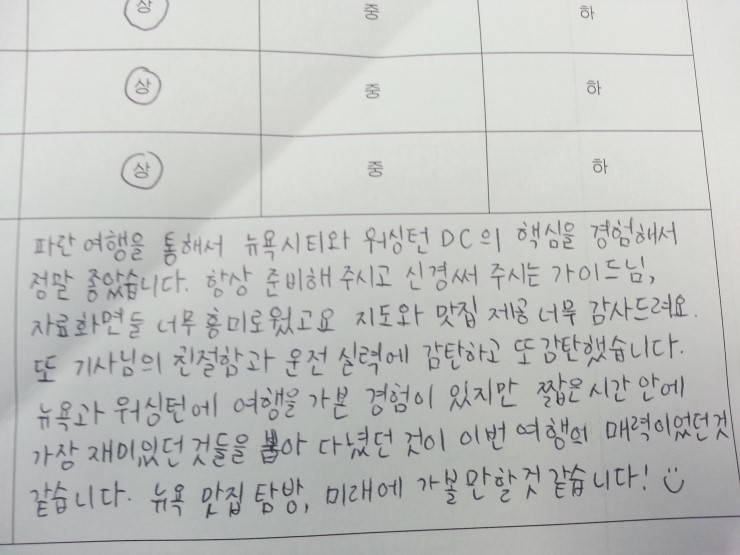 상 중 하
상 중 하
상 중 하
파란여행을 통해서 뉴욕시티와 워싱턴 DC의 핵심을 경험해서
정말 좋았습니다. 항상 준비해 주시고 신경써 주시는 가이드님,
자료화면들 너무 흥미로웠고요 지도와 맛집 제공 너무 감사드려요.
또 기사님의 친절함과 운전 실력에 감탄하고 또 감탄했습니다.
뉴욕과 워싱턴에 여행을 가본 경험이 있지만 짧은 시간 안에
가장 재미있던 것들을 뽑아 다녔던 것이 이번 여행의 매력이었던것
같습니다. 뉴욕 맛집 탐방, 미래에 가볼만할것 같습니다!